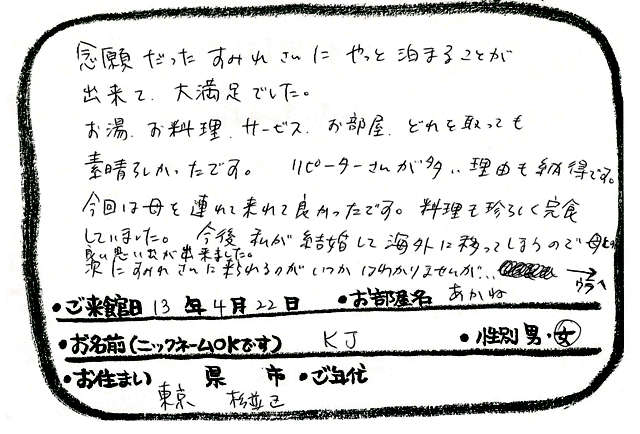 念願だった すみれさんに やっと泊まることが
出来て、大満足でした。
お湯、お料理、サービス、お部屋、どれを取っても
素晴らしかったです。 リピーターさんが多い理由も納得です。
今回は母を連れて来れて良かったです。料理も珍らしく完食
していました。 今後 私が結婚して海外に移ってしまうので母との
良い思い出が出来ました。
次にすみれさんに来られるのがいつかはわかりませんが… → ウラへ
・ご来館日 13 年 4 月 22 日 ・お部屋名 あかね
・お名前(ニックネームOKです) KJ ・性別 男・女
・お住まい 県 市 ・ご年代
東京 杉並区